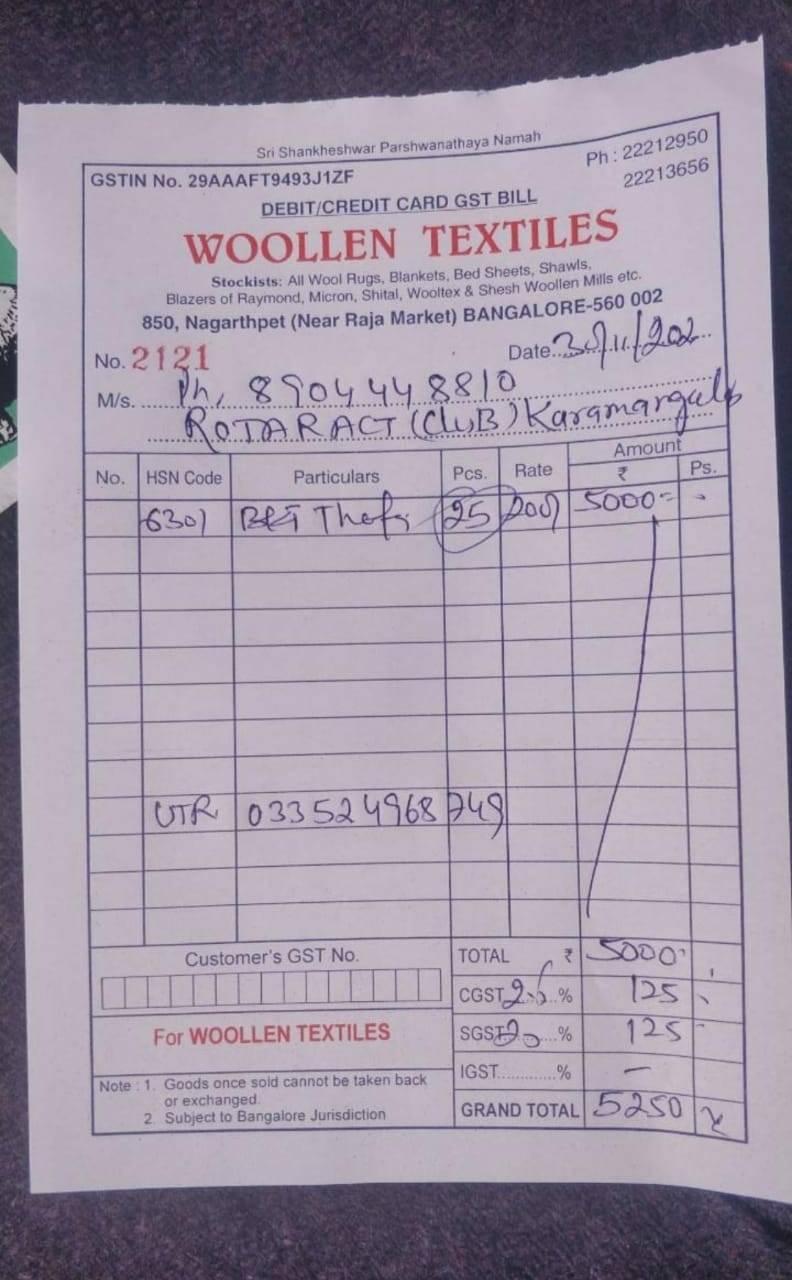 Sri Shankheshwar Parshwanathaya Namah
GSTIN No. 29AAAFT9493J1ZF
Ph : 22212950
22213656
DEBIT/CREDIT CARD GST BILL
WOOLLEN TEXTILES
Stockists: All Wool Rugs, Blankets, Bed Sheets, Shawls,
Blazers of Raymond, Micron, Shital, Wooltex & Shesh Woollen Mills etc.
850, Nagarthpet (Near Raja Market) BANGALORE-560 002
No. 2121 Date 30/11/202
M/s. Ph, 8904448810
ROTARACT (CluB)
No. HSN Code Particulars Pcs. Rate Amount
₹ Ps.
6301 25 200/ 5000=
UTR 033524968749
Customer's GST No. TOTAL ₹ 5000
CGST 2.5 % 125
For WOOLLEN TEXTILES SGST % 125
IGST % —
Note : 1. Goods once sold cannot be taken back
or exchanged.
2. Subject to Bangalore Jurisdiction
GRAND TOTAL 5250